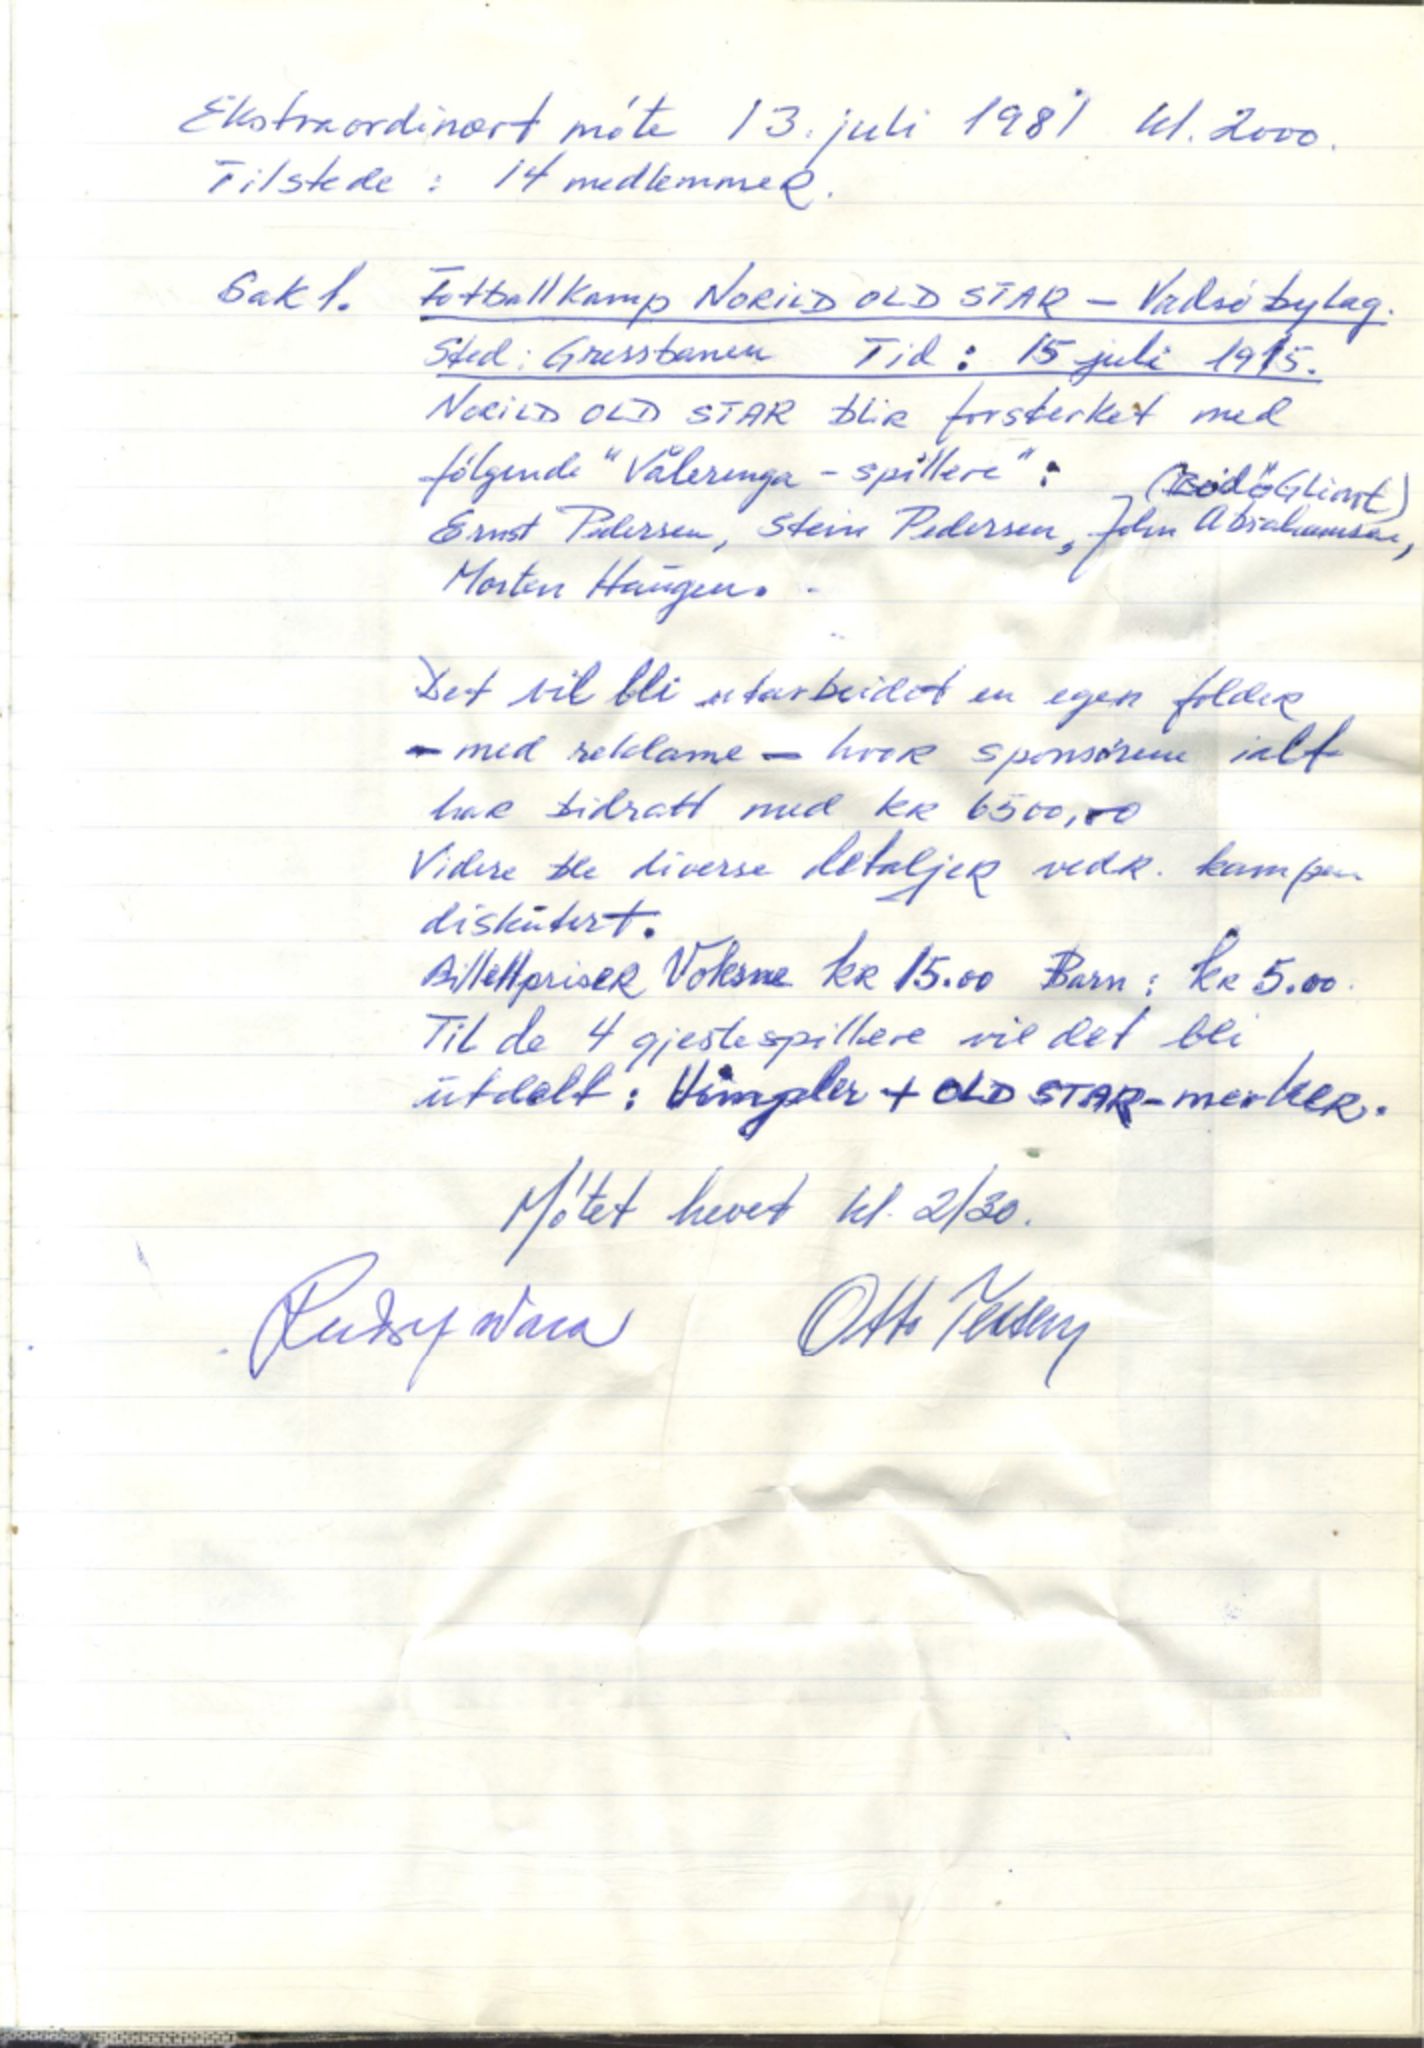 Ekstraordinært møte 13. juli 1981 kl. 2000.
Tilstede: 14 medlemmer.
Sak 1. Fotballkamp NORILD OLD STAR – Vadsø bylag.
Sted: Gressbanen Tid: 15 juli 1915.
NORILD OLD STAR blir forsterket med
følgende "Vålerenga-spillere":
("Bodø" Glimt)
Ernst Pedersen, Stein Pedersen, John Abrahamsen,
Morten Haugen.
Det vil bli utarbeidet en egen folder
– med reklame – hvor sponsørene ialt
har bidratt med kr 6500,00
Videre ble diverse detaljer vedr. kampen
diskutert.
Billettpriser Voksne kr 15.00 Barn: kr 5.00.
Til de 4 gjestespillere vil det bli
utdelt: Vimpler + OLD STAR-merker.
Møtet hevet kl. 2130.
Otto